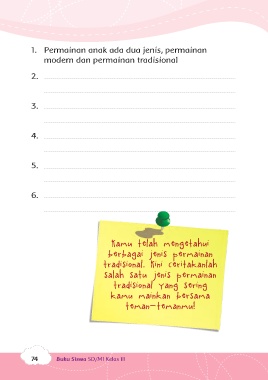 1. Permainan anak ada dua jenis, permainan
modern dan permainan tradisional
2.
3.
4.
5.
6.
Kamu telah mengetahui
berbagai jenis permainan
tradisional. Kini ceritakanlah
salah satu jenis permainan
tradisional yang sering
kamu mainkan bersama
teman-temanmu!
74 Buku Siswa SD/MI Kelas III